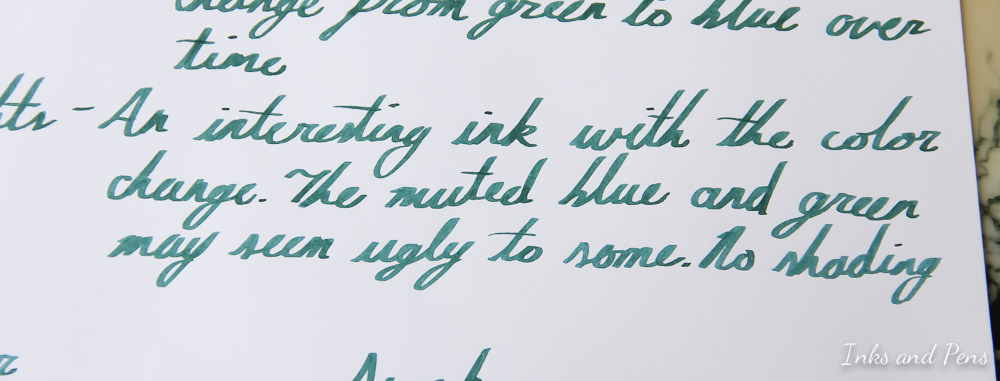 change from green to blue over
time
- An interesting ink with the color
change. The muted blue and green
may seem ugly to some. No shading
Inks and Pens